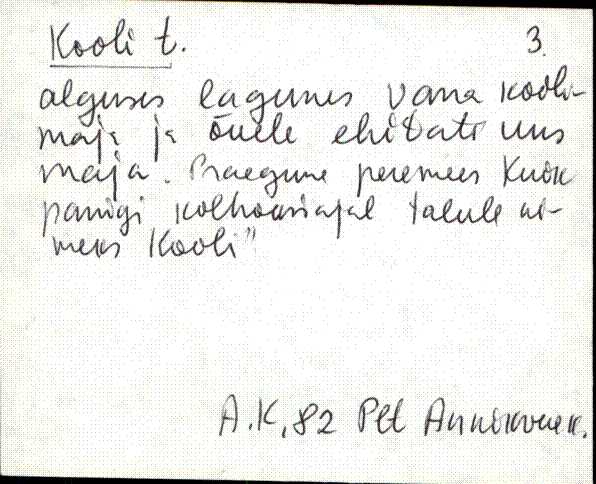 Kooli t. 3.
alguses lagunes vana kooli-
maja ja õuele ehitati uus
maja. Praegune peremees Kukk
panigi kolhoosiajal talule ni-
meks Kooli"
A.K, 82 Plt